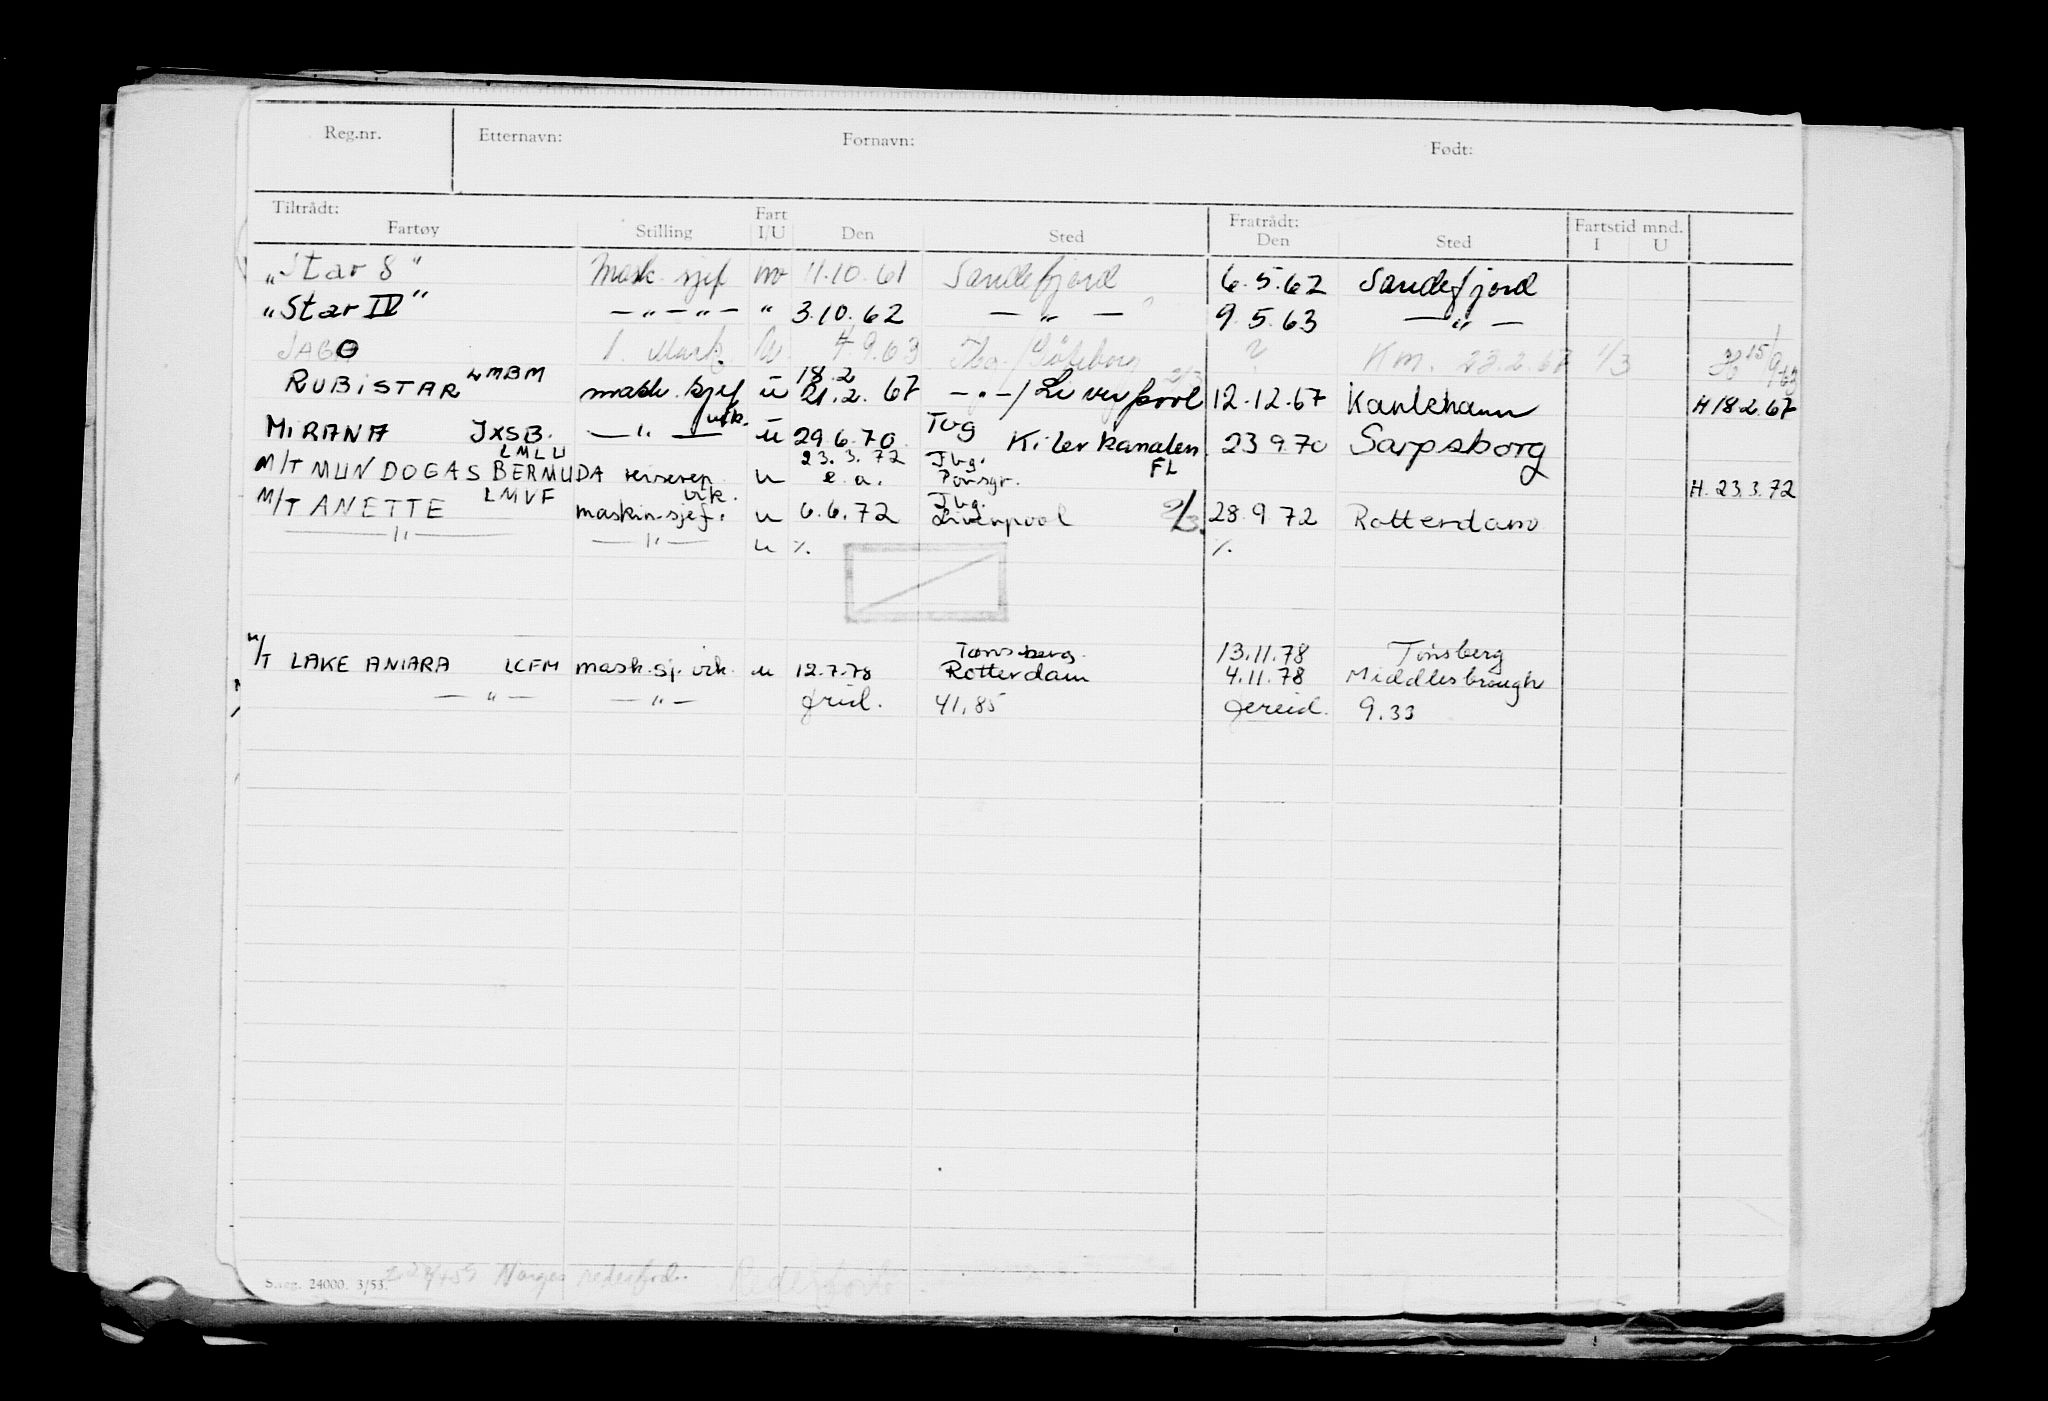 Reg.nr. Etternavn: Fornavn: Født:
Tiltrådt: Fartøy Stilling Fart I/U Den Sted Fratrådt: Den Sted Fartstid mnd. I U
"Star 8" Mask. sjef 11.10.61 Sandefjord 6.5.62 Sandefjord
"Star IV" — " — " — " 3.10.62 — " — 9.5.63 — " —
JAGO 1. Mask 4.9.63 Tbg./Göteborg ? Km. 23.2.67 1/3
18.2
RUBISTAR LMBM mask. sjef u 21.2.67 — " —/Liverpool 12.12.67 H 18.2.67
MIRANA JXSB. — " — vik. u 29.6.70 Tbg Kilerkanalen 23 9 70 Sarpsborg
LMLU 23.3.72 Tbg. FL
M/T MUNDOGAS BERMUDA reiserep. u e.a. Porsgr. H. 23.3.72
LMVF vik. Tbg.
M/T ANETTE maskin.sjef. u 6.6.72 Liverpool 2/3. 28.9 72 Rotterdam
— " — — " — u %. %.
Tønsberg. 13.11.78 Tønsberg
M/T LAKE ANIARA LCFM mask.sj. vik. u 12.7.78 Rotterdam 4.11.78 Middlesbrough
— " — — " — 41,85 9.33
S.reg. 24000. 3/53. Norges